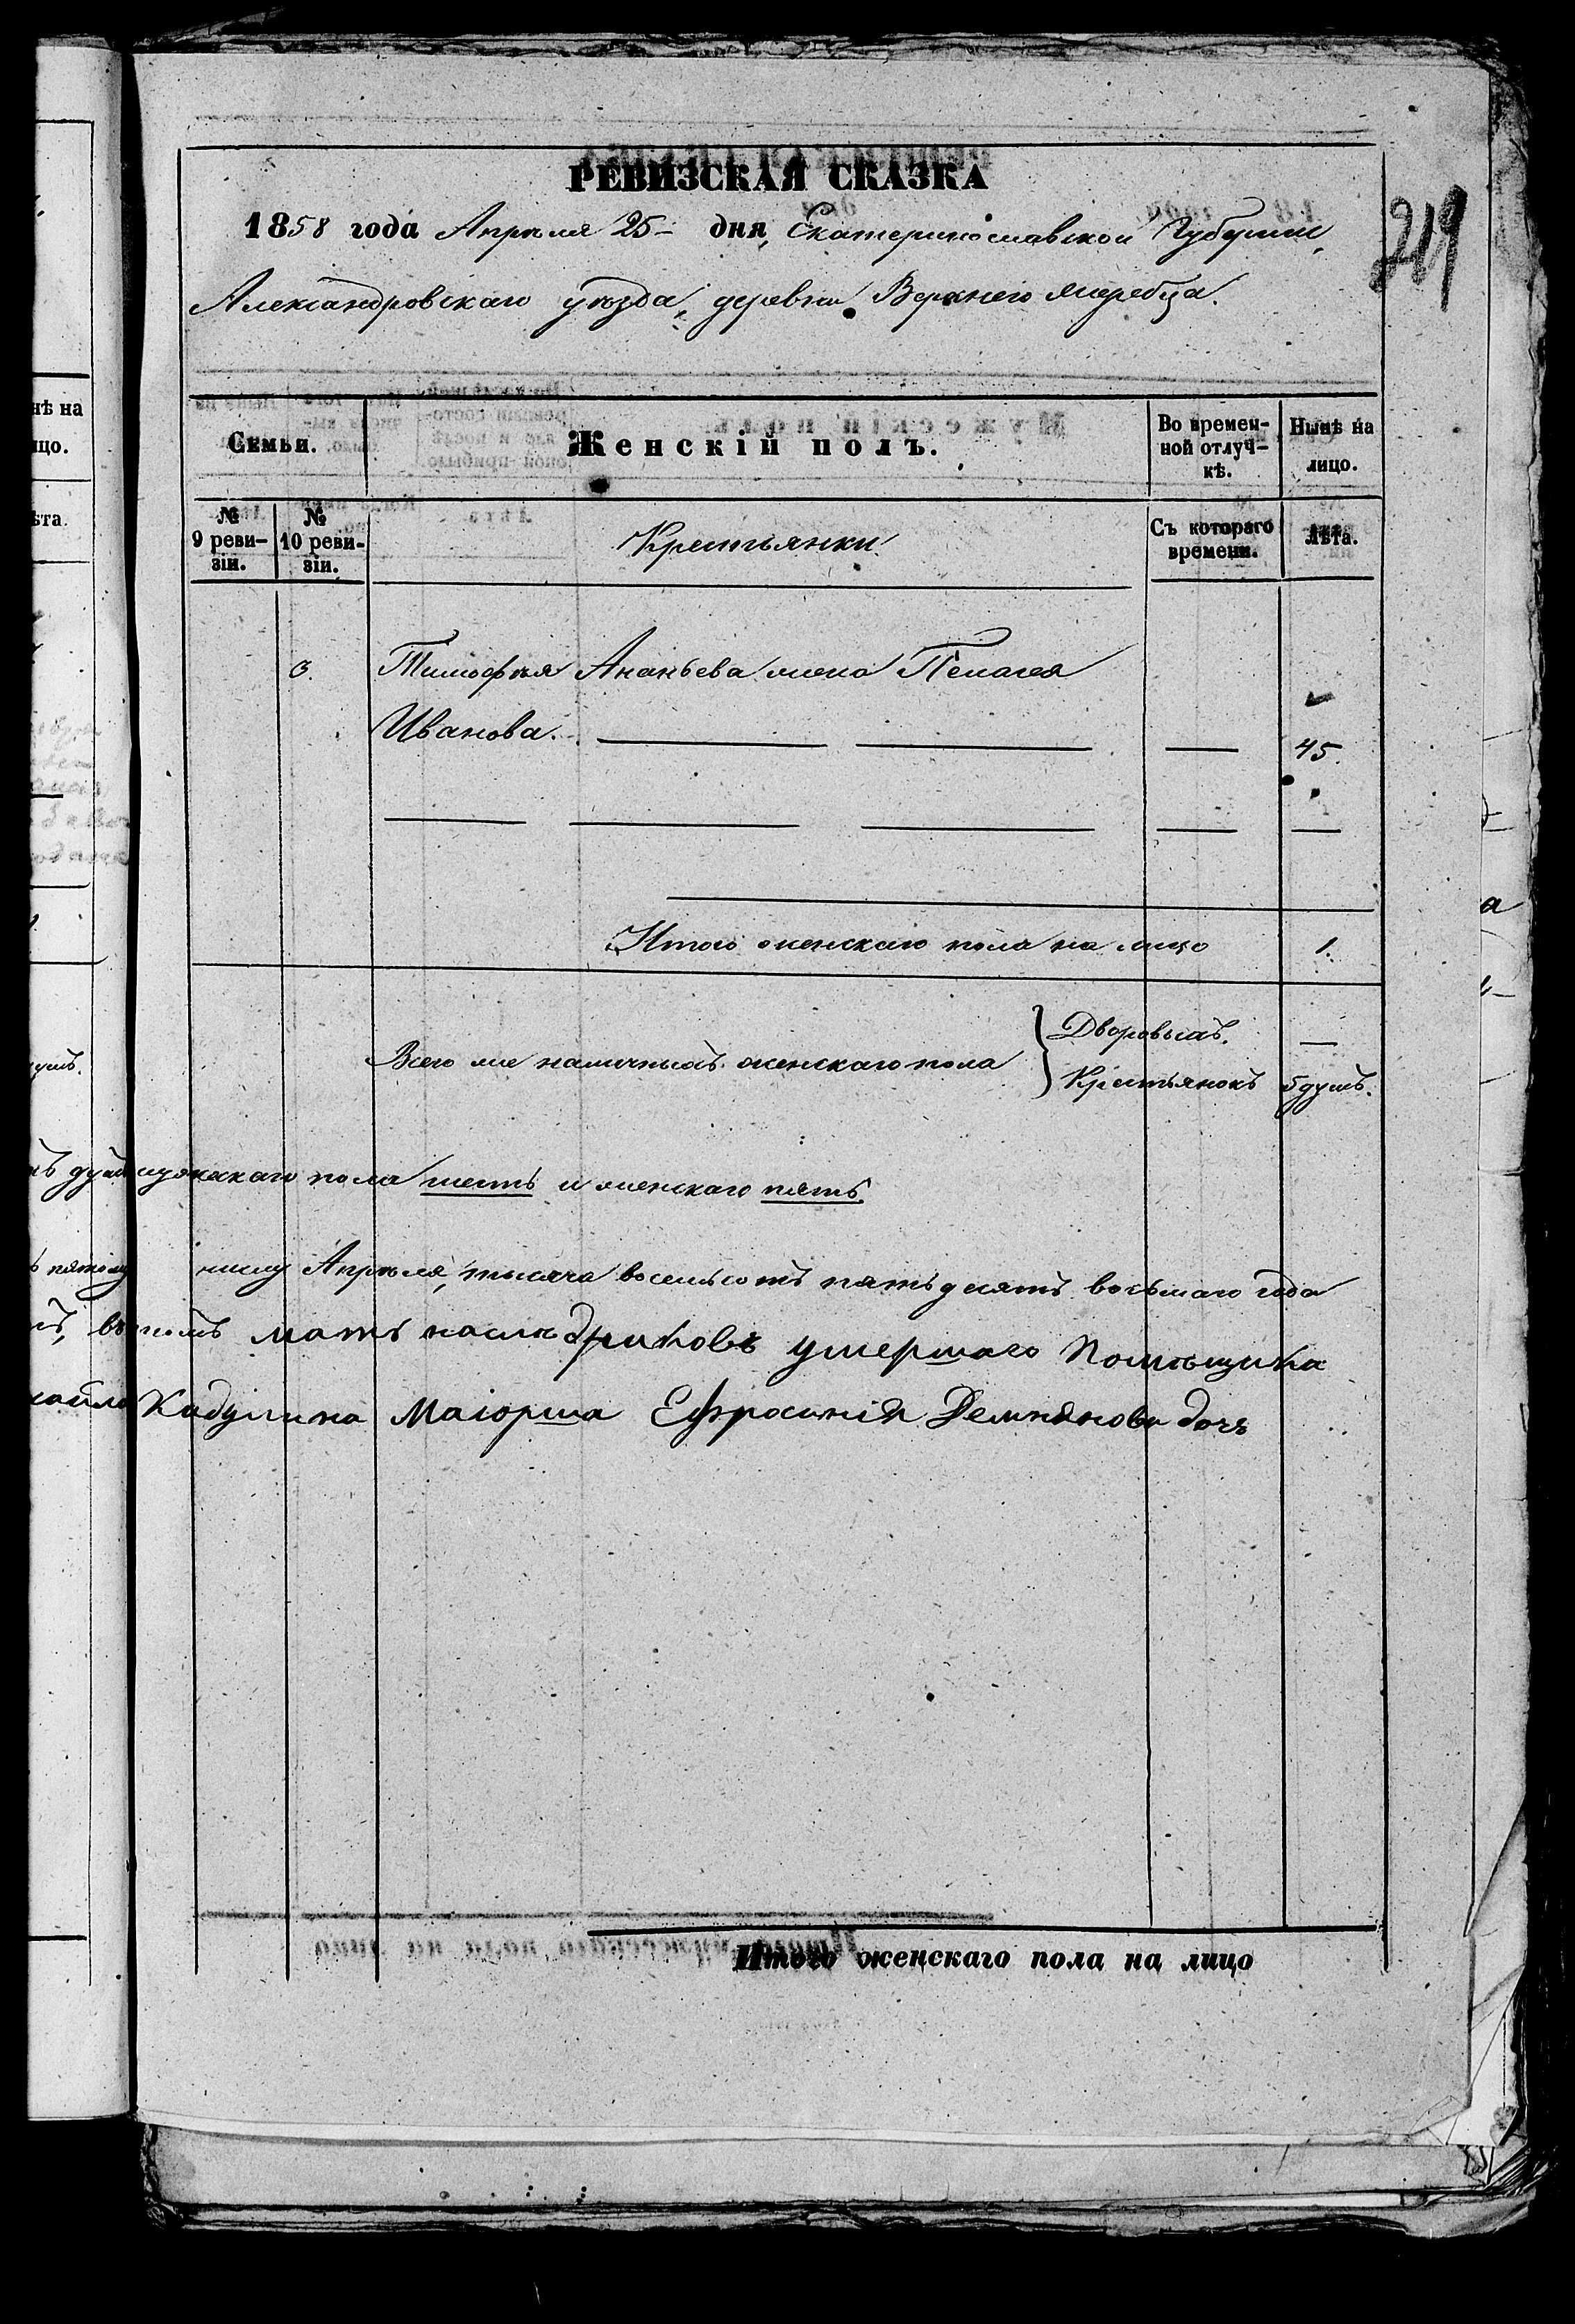 219
РЕВИЗСКАЯ СКАЗКА
1858 года Апрѣля 25 – дня, Екатеринославской Губерніи,
Александровскаго уѣзда, деревни Верхнего Жеребца.
Семьи.
Женскій полъ.
Во времен-
ной отлуч-
кѣ.
Нынѣ на
лицо.
№
9 реви-
зіи.
№
10 реви-
зіи.
Крестьянки.
Съ котораго
времени.
Лѣта.
3. Тимофѣя Ананьева жена Пелагея
Иванова. 45.
Итого женскаго пола на лицо 1.
Всего же наличныхъ женскаго пола
Дворовыхъ. —
Крестьянокъ 5 душъ.
мужескаго пола шесть и женскаго пять.
числу Апрѣля, тысяча восемьсотъ пятьдесятъ восьмаго года
въ томъ мать наслѣдриковъ умершаго Помѣщика
Маіорша Ефросинія Демьянова дочь
Итого женскаго пола на лицо
нѣ на
ицо.
ѣта.